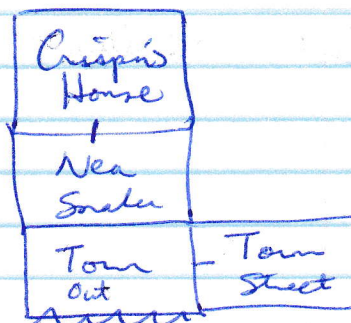 Crispin's
House
Nea
Town
Out
Town
Street